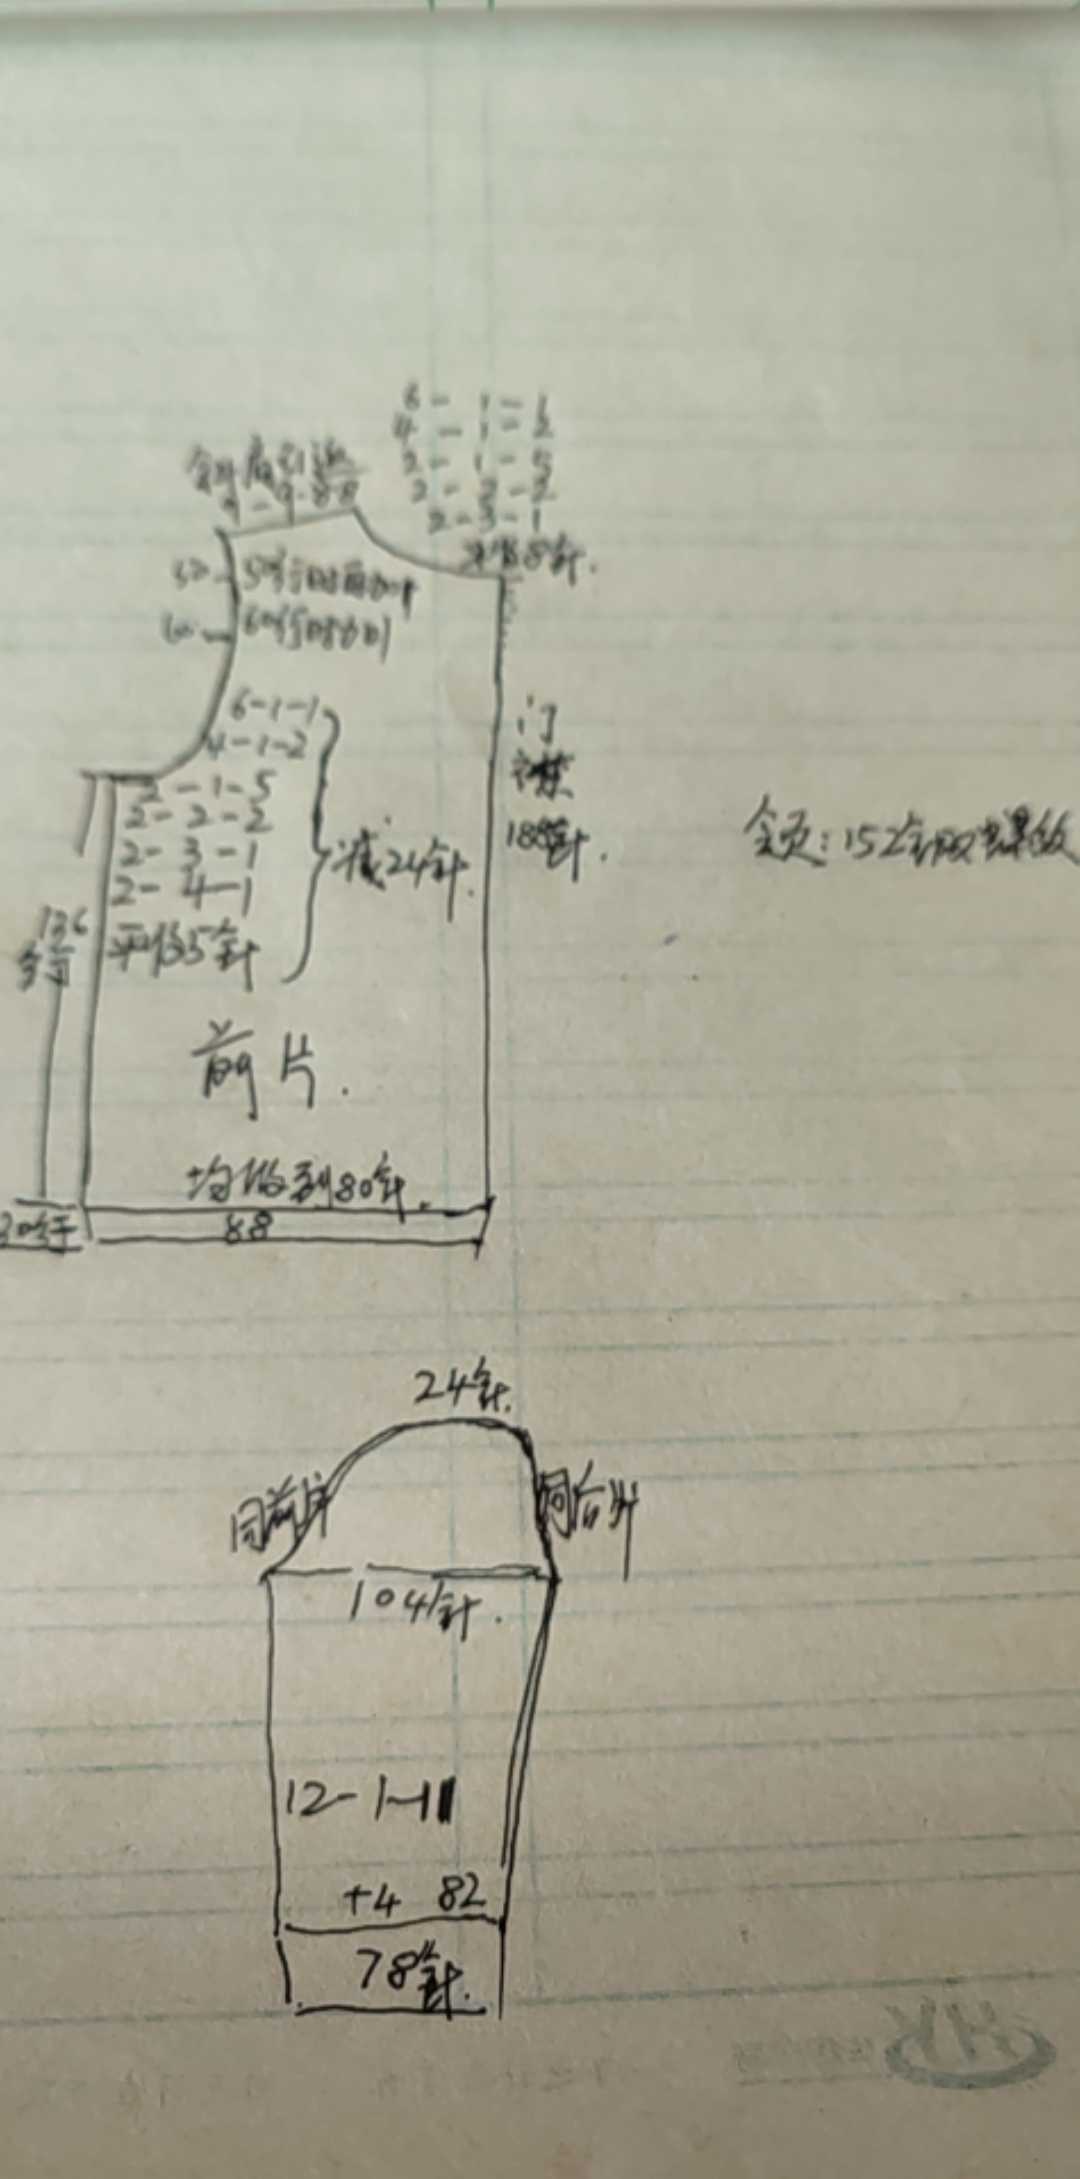 6-1-1
4-1-2
2-1-5
2-2-2
2-3-1
平收8针.
斜肩引退
9-9-88
50行时加
60行时加1
6-1-1
4-1-2
2-1-5
2-2-2
2-3-1
2-4-1
平收5针
减24针.
门
襟
188针.
领:152针
136
行
前片.
均收到80针.
88
24针.
同前片
同后片
104针.
12-1-11
+4 82
78针.